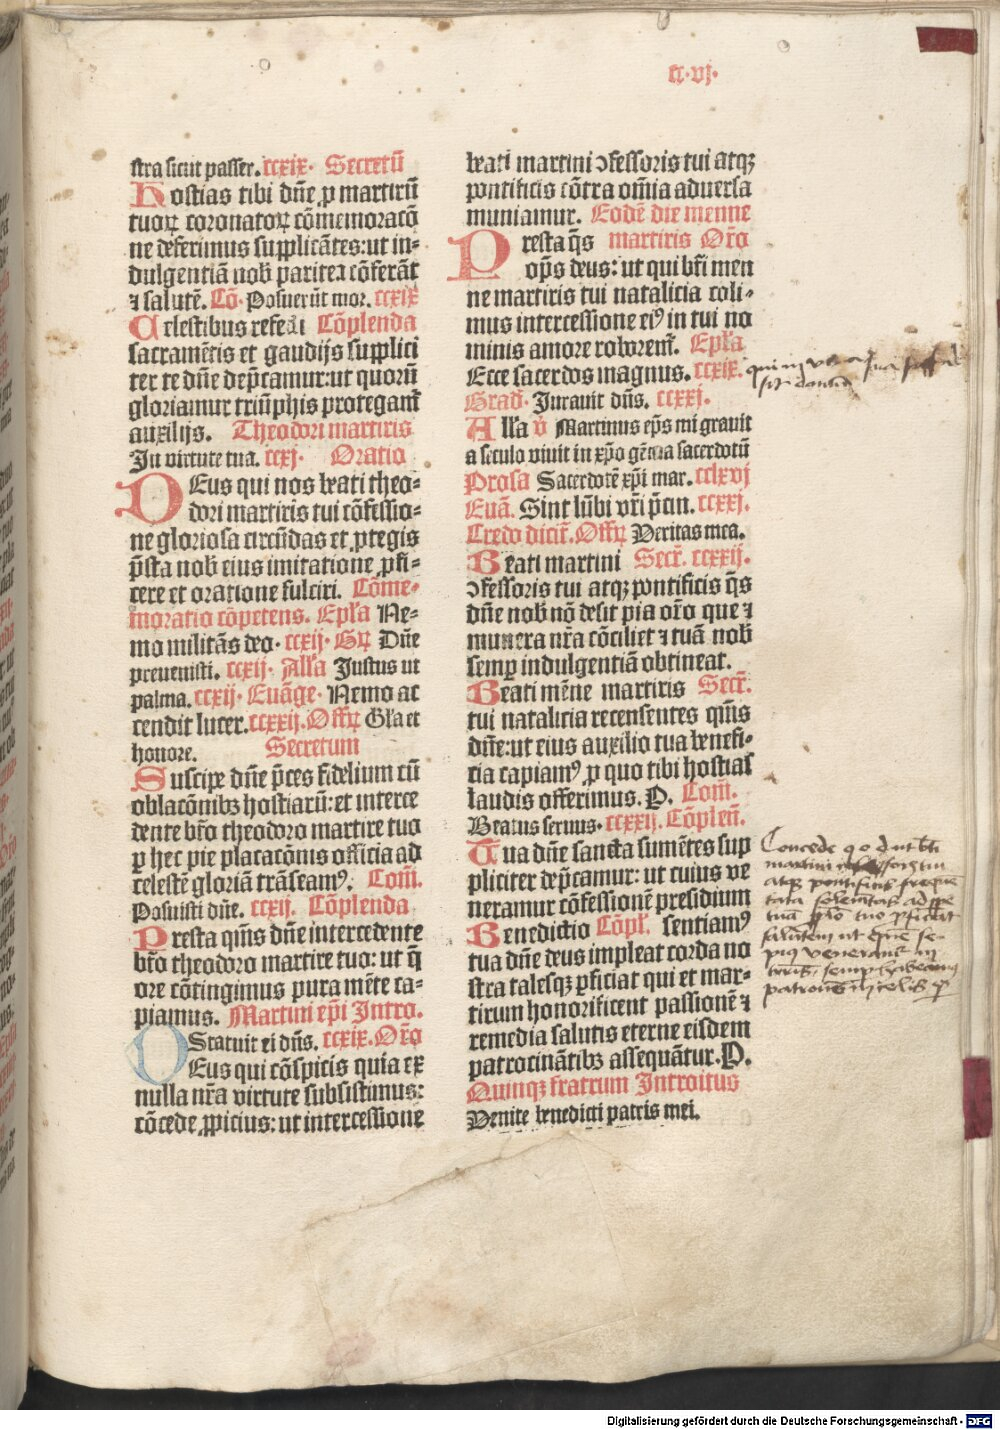 cc·vj·
stra sicut passer. ccxix· Secretū
Hostias tibi dn̄e ꝓ martirū
tuoꝝ coronatoꝝ cōmemoracō
ne deferimus supplicātes: ut in-
dulgentiā nob̄ pariter cōferāt
⁊ salutē. Cō· Posuerūt mor. ccxix
Celestibus refecti Cōplenda
sacramētis et gaudijs supplici
ter te dn̄e dep̄camur: ut quorū
gloriamur triūphis protegant̄
auxilijs. Theodori martiris
In virtute tua. ccxj· Oratio
DEus qui nos beati theo-
dori martiris tui cōfessio-
ne gloriosa circūdas et ꝓtegis
p̄sta nob̄ eius imitatione ꝓfi-
cere et oratione fulciri. Cōme-
moratio cōpetens. Epl̄a Ne-
mo militās deo· ccxij· Gꝝ Dn̄e
prevenisti. ccxij· All̄a Justus ut
palma. ccxij· Euāge· Nemo ac
cendit lucer. ccxxij. Offꝝ Gl̄a et
honore. Secretum
Suscipe dn̄e p̄ces fidelium cū
oblacōnibꝫ hostiarū: et interce
dente bt̄o theodoro martire tuo
ꝑ hec pie placacōnis officia ad
celestē gloriā trāseamꝰ. Com̄.
Posuisti dn̄e. ccxij. Cōplenda
Presta qm̄s dn̄e intercedente
bt̄o theodoro martire tuo: ut q̄
ore cōtingimus pura mēte ca-
piamus. Martini ep̄i Intro.
Statuit ei dn̄s. ccxix. Or̄o
DEus qui cōspicis quia ex
nulla nr̄a virtute subsistimus:
cōcede ꝓpicius: ut intercessione
beati martini ↄfessoris tui atqꝫ
pontificis cōtra om̄ia aduersa
muniamur. Eodē die menne
Presta q̄s martiris Or̄o
op̄s deus: ut qui bt̄i men
ne martiris tui natalicia coli-
mus intercessione eiꝰ in tui no
minis amore roborem̄. Epl̄a
Ecce sacerdos magnus. ccxix.
Grad̄· Jurauit dn̄s. ccxxj.
All̄a v̄ Martinus ep̄s mi grauit
a seculo viuit in xp̄o gēma sacerdotū
Prosa Sacerdotē xp̄i mar. cclxvj
Euā. Sint lūbi vr̄i p̄cin. ccxxj.
Credo dicit̄. Offꝝ Veritas mea.
Beati martini Secr̄. ccxxij.
ↄfessoris tui atqꝫ pontificis q̄s
dn̄e nob̄ nō desit pia or̄o que ⁊
munera nr̄a cōciliet ⁊ tuā nob̄
semꝑ indulgentiā obtineat.
Beati mēne martiris Secr̄.
tui natalicia recensentes qm̄s
dn̄e: ut eius auxilio tua benefi-
cia capiamꝰ ꝑ quo tibi hostias
laudis offerimus. P. Com̄.
Beatus seruus. ccxxij. Cōplen̄.
Tua dn̄e sancta sumētes sup
pliciter dep̄camur: ut cuius ve
neramur cōfessionē presidium
Benedictio Cōpl̄. sentiamꝰ
tua dn̄e deus impleat corda no
stra talesqꝫ ꝑficiat qui et mar-
tirum honorificent passionē ⁊
remedia salutis eterne eisdem
patrocinātibꝫ assequātur. P.
Quinqꝫ fratrum Introitus
Venite benedicti patris mei.
Concede q o d ut bt̄i
martini
atqꝫ pontificis freque
tata solemitas ad ꝑpe
tuā ꝓficiat
salutem ut quē se-
pius veneramur in
terris, semꝑ habeamꝰ
patronū in celis ꝑ
Digitalisierung gefördert durch die Deutsche Forschungsgemeinschaft - DFG